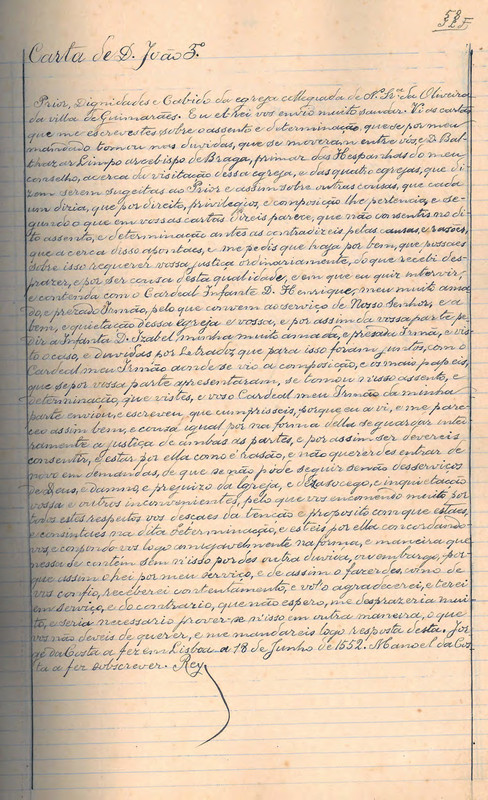 Carta de D. João 3º.
Prior, Dignidades e Cabido da egreja collegiada de N.ª Sr.ª da Oliveira
da villa de Guimarães. Eu el-rei vos envio muito saudar. Vi as cartas
que me escrevestes sobre o assento e determinação, que se por meu
mandado tomou nas duvidas, que se moveram entre vós, e D. Bal-
thazar Limpo arcebispo de Braga, primaz das Hespanhas do meu
conselho, acerca da visitação dessa egreja, e das quatro egrejas, que di-
zem serem sugeitas ao Prior e assim sobre outras cousas, que cada
um dizia, que por direito, privilegios, e composição lhe pertencia, e se-
gundo o que em vossas cartas dizeis parece, que não consentis no di-
to assento, e determinação antes as contradizeis pelas causas, e razões,
que acerca disso apontaes, e me pedis que haja por bem, que possaes
sobre isso requerer vossa justiça ordinariamente, do que recebi des-
prazer, e por ser cousa desta qualidade, e em que eu quiz intervir,
e contenda com o Cardeal Infante D. Henrique, meu muito ama-
do, e prezado Irmão, pelo que convem ao serviço de Nosso Senhor, e a
bem, e quietação dessa Egreja e vossa, e por assim da vossa parte pe-
dir a Infanta D. Izabel minha muito amada, e presada Irmã, e vis-
to o caso, e duvidas por Letrados que para isso foram juntos, com o
Cardeal meu Irmão aonde se vio a composição, e os mais papeis,
que se por vossa parte apresentaram, se tomou nisso assento, e
determinação, que vistes, e vos o Cardeal meu Irmão da minha
parte enviou, e escreveu, que cumprisseis, porque eu a vi, e me pare-
ceu assim bem, e cousa igual por na forma della se guardar intei-
ramente a justiça de ambas as partes, e por assim ser devereis
consentir, e estar por ella como é rasão, e não quererdes entrar de
novo em demandas, de que se não póde seguir senão desserviços
de Deus, e damno, e prejuizo da Egreja, e desasocego, e inquietação
vossa e outros inconvenientes, pelo que vos encomendo muito por
todos estes respeitos vos desçaes da tenção e proposito com que estaes,
e consintaes na dita determinação, e esteis por ella concordando-
vos, e conpondo vos logo amigavelmente na forma, e maneira que
nessa se contém sem n'isso pordes outra duvida, ou embargo, por-
que assim o hei por meu serviço, e de assim o fazerdes, como de
vós confio, receberei contentamento, e vol'o agradecerei, e terei
em serviço, e do contrario, que não espero, me desprazeria mui-
to, e seria necessario prover-se n'isso em outra maneira, o que
vós não deveis de querer, e me mandareis logo resposta desta. Jor-
ge da Costa a fez em Lisboa a 18 de Junho de 1552. Manoel da Cos-
ta a fez sobscrever. Rey